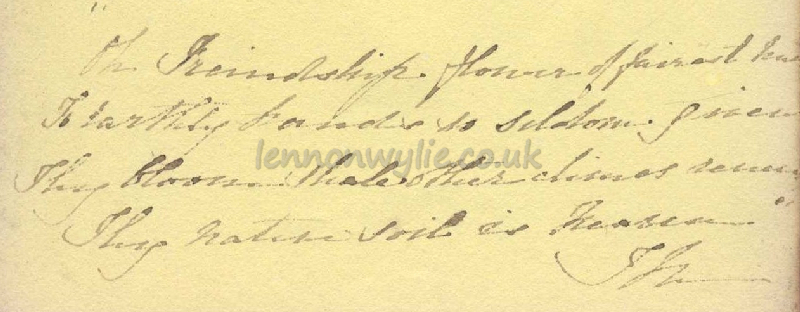 "Oh Freindship flower of fairest hue
To earthly hands so seldom given
Thy bloom shale other climes renew
Thy native soil is heaven"
lennonwylie.co.uk